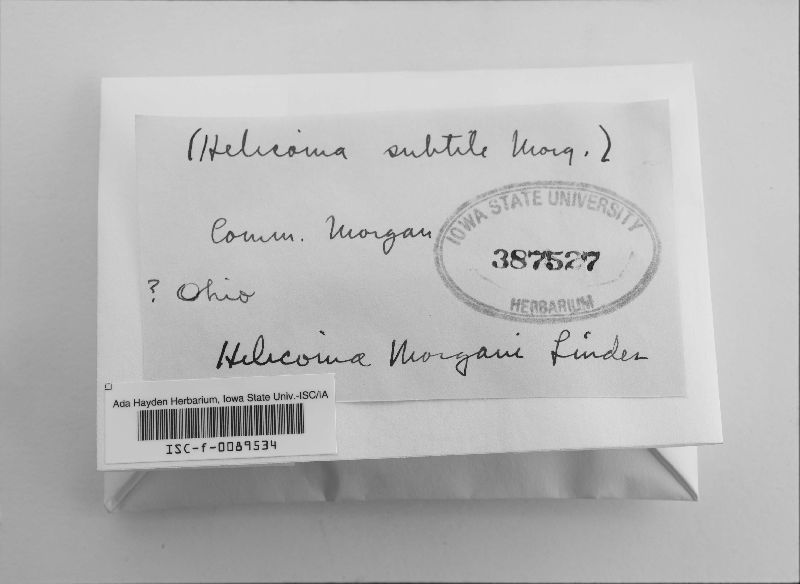 (Helicoma subtile Morg.)
Comm. Morgan
IOWA STATE UNIVERSITY
387527
HERBARIUM
? Ohio
Helicoma Morgani Linder
Ada Hayden Herbarium, Iowa State Univ.-ISC/IA
ISC-f-0089534